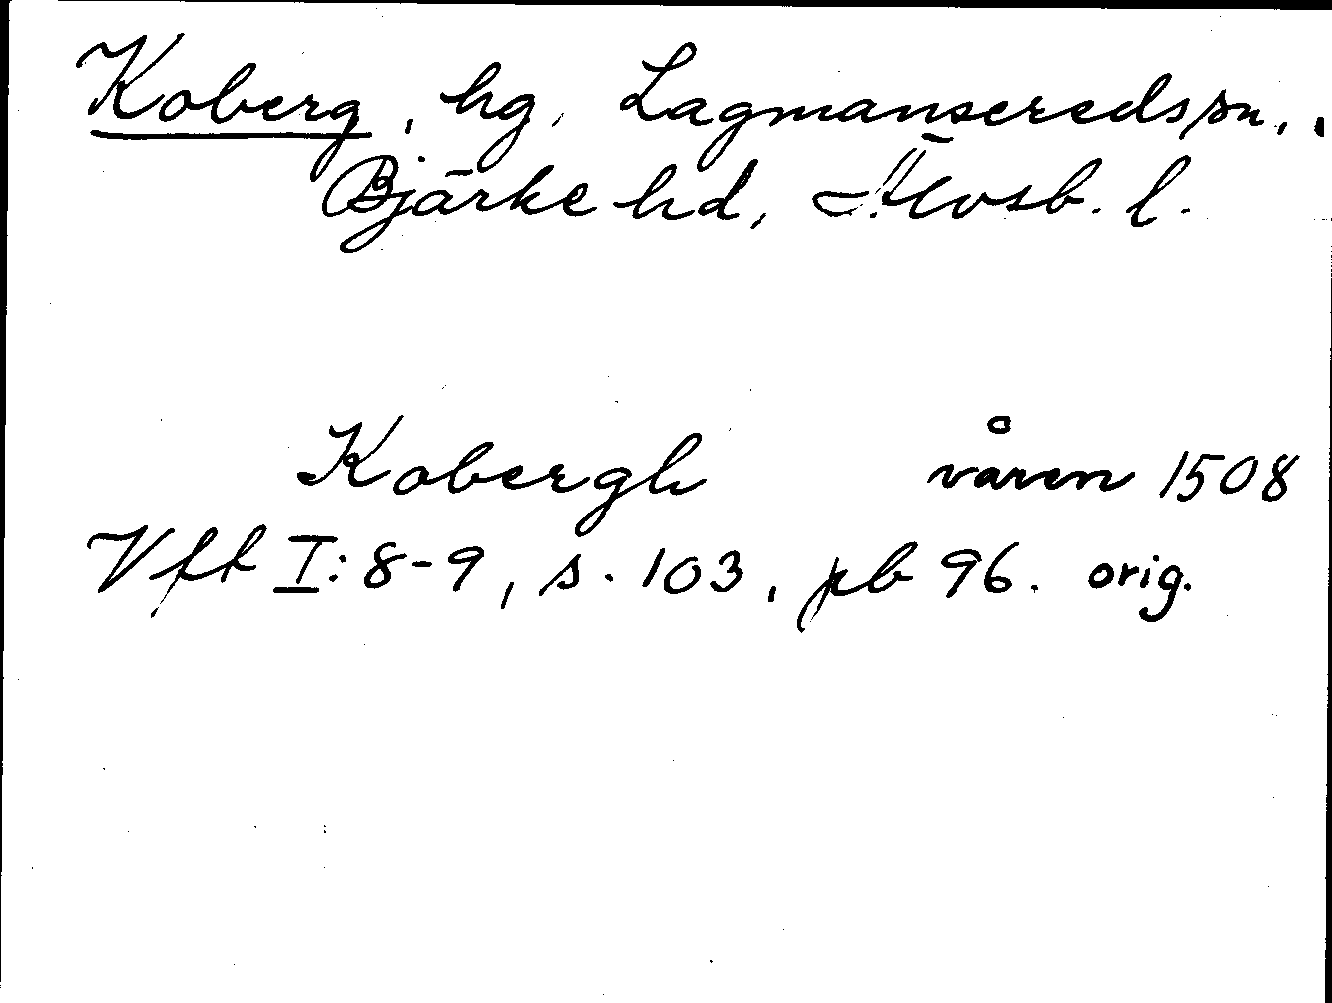 Koberg, hg, Lagmansereds sn.,
Bjärke hd, Älvsb. l.
Kobergh våren 1508
Vft I: 8-9, s. 103, pb 96. orig.